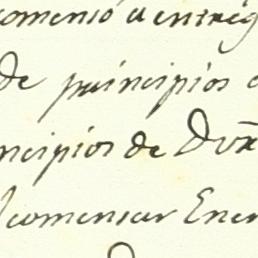 comensó a entreg
de principios d
ncipios de Dor
comensar Ener